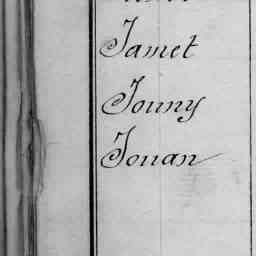 Jamet
Jouny
Jouan